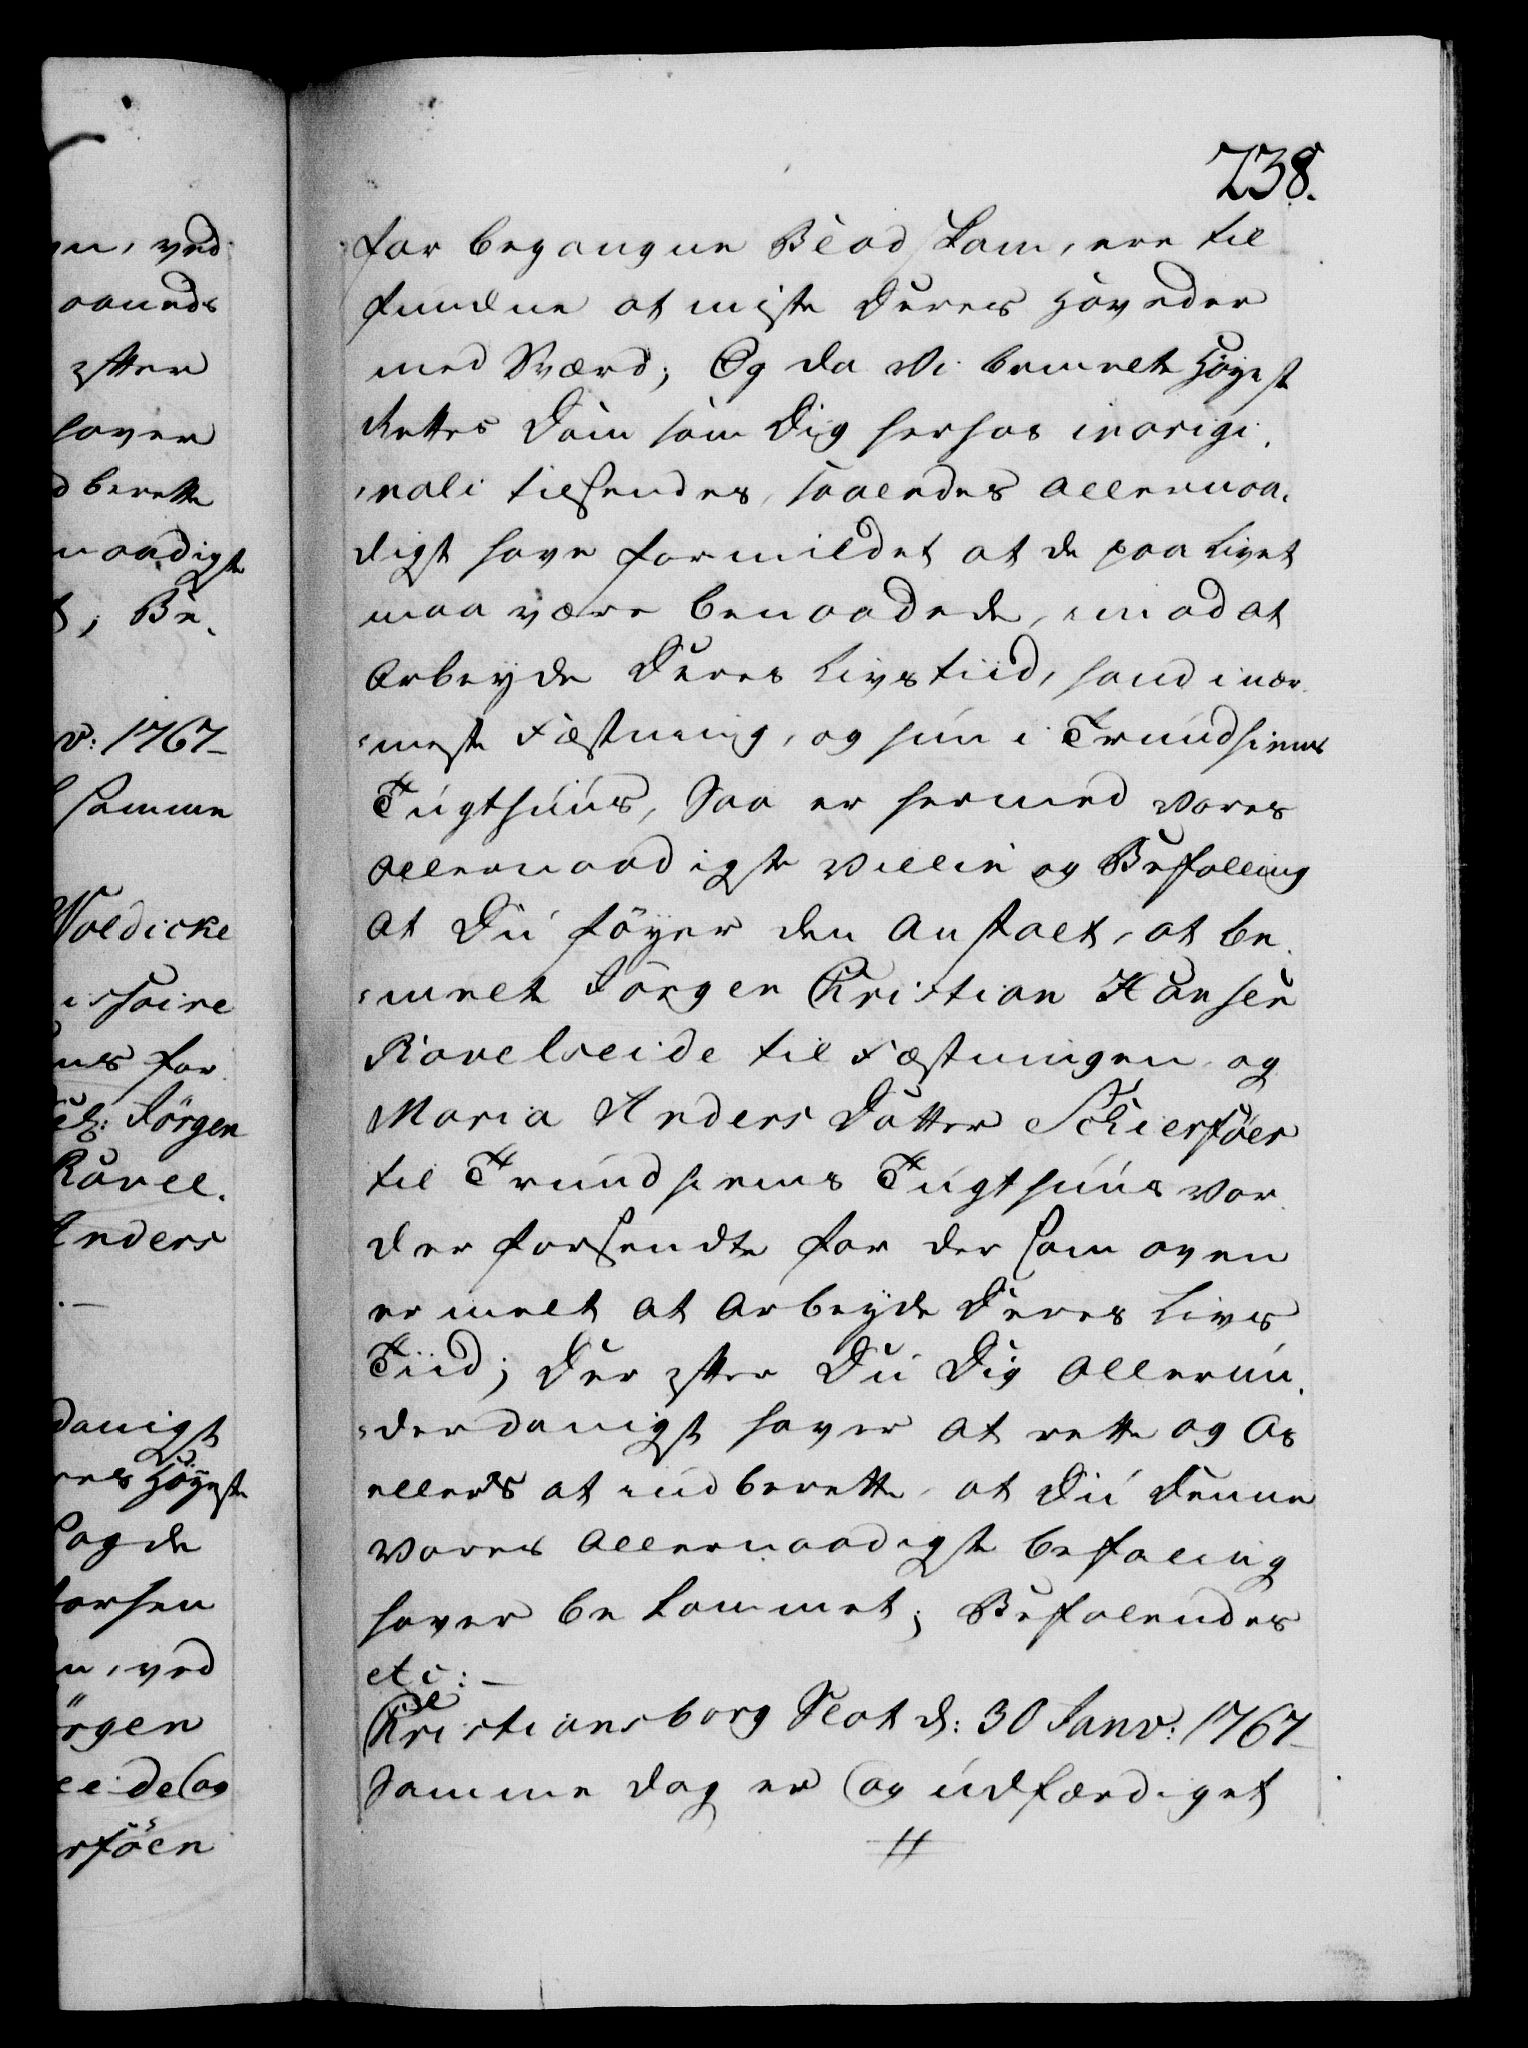 238.
for begangne Blodskam, ere til
fundne at miste deres Hoveder
med Sværd; Og da Vi bemelte Høyest
Rettes Dom som Dig herhos in origi,
,nali tilsendes, saaledes allernaa,
digst have formildet at de paa Livet
maa være benaadede, imod at
arbeyde deres Livstiid, hand i nær
,meste Fæstning, og hun i Trundhiems
Tugthuus, Saa er hermed Vores
allernaadigste Villie og Befalling
at Du føyer den Anstalt, at be,
,melte Jörgen Christian Hansen
Ravelseide til Fæstningen og
Maria Anders Datter Schierföen
til Trundhiems Tugthuus vor
der forsendte for der som oven
ermelt at arbeyde deres Livs
Tiid; Der efter Du Dig allerun,
,derdanigst haver at rette og os
ellers at indberette, at Du denne
Vores allernaadigste befaling
haver bekommet; Befalendes
etc: –
Christiansborg Slot d: 30 Janv: 1767–
Samme dag er og udfærdiget
//
ved
aaneds
efter
haver
d berette
naadigste
t, Be,
v: 1767–
samme
Woldicke
issaire
ms for
Jörgen
Ravel,
Anders
danigst
res Høyeste
Sagde
ved
örgen
eide og
rföen